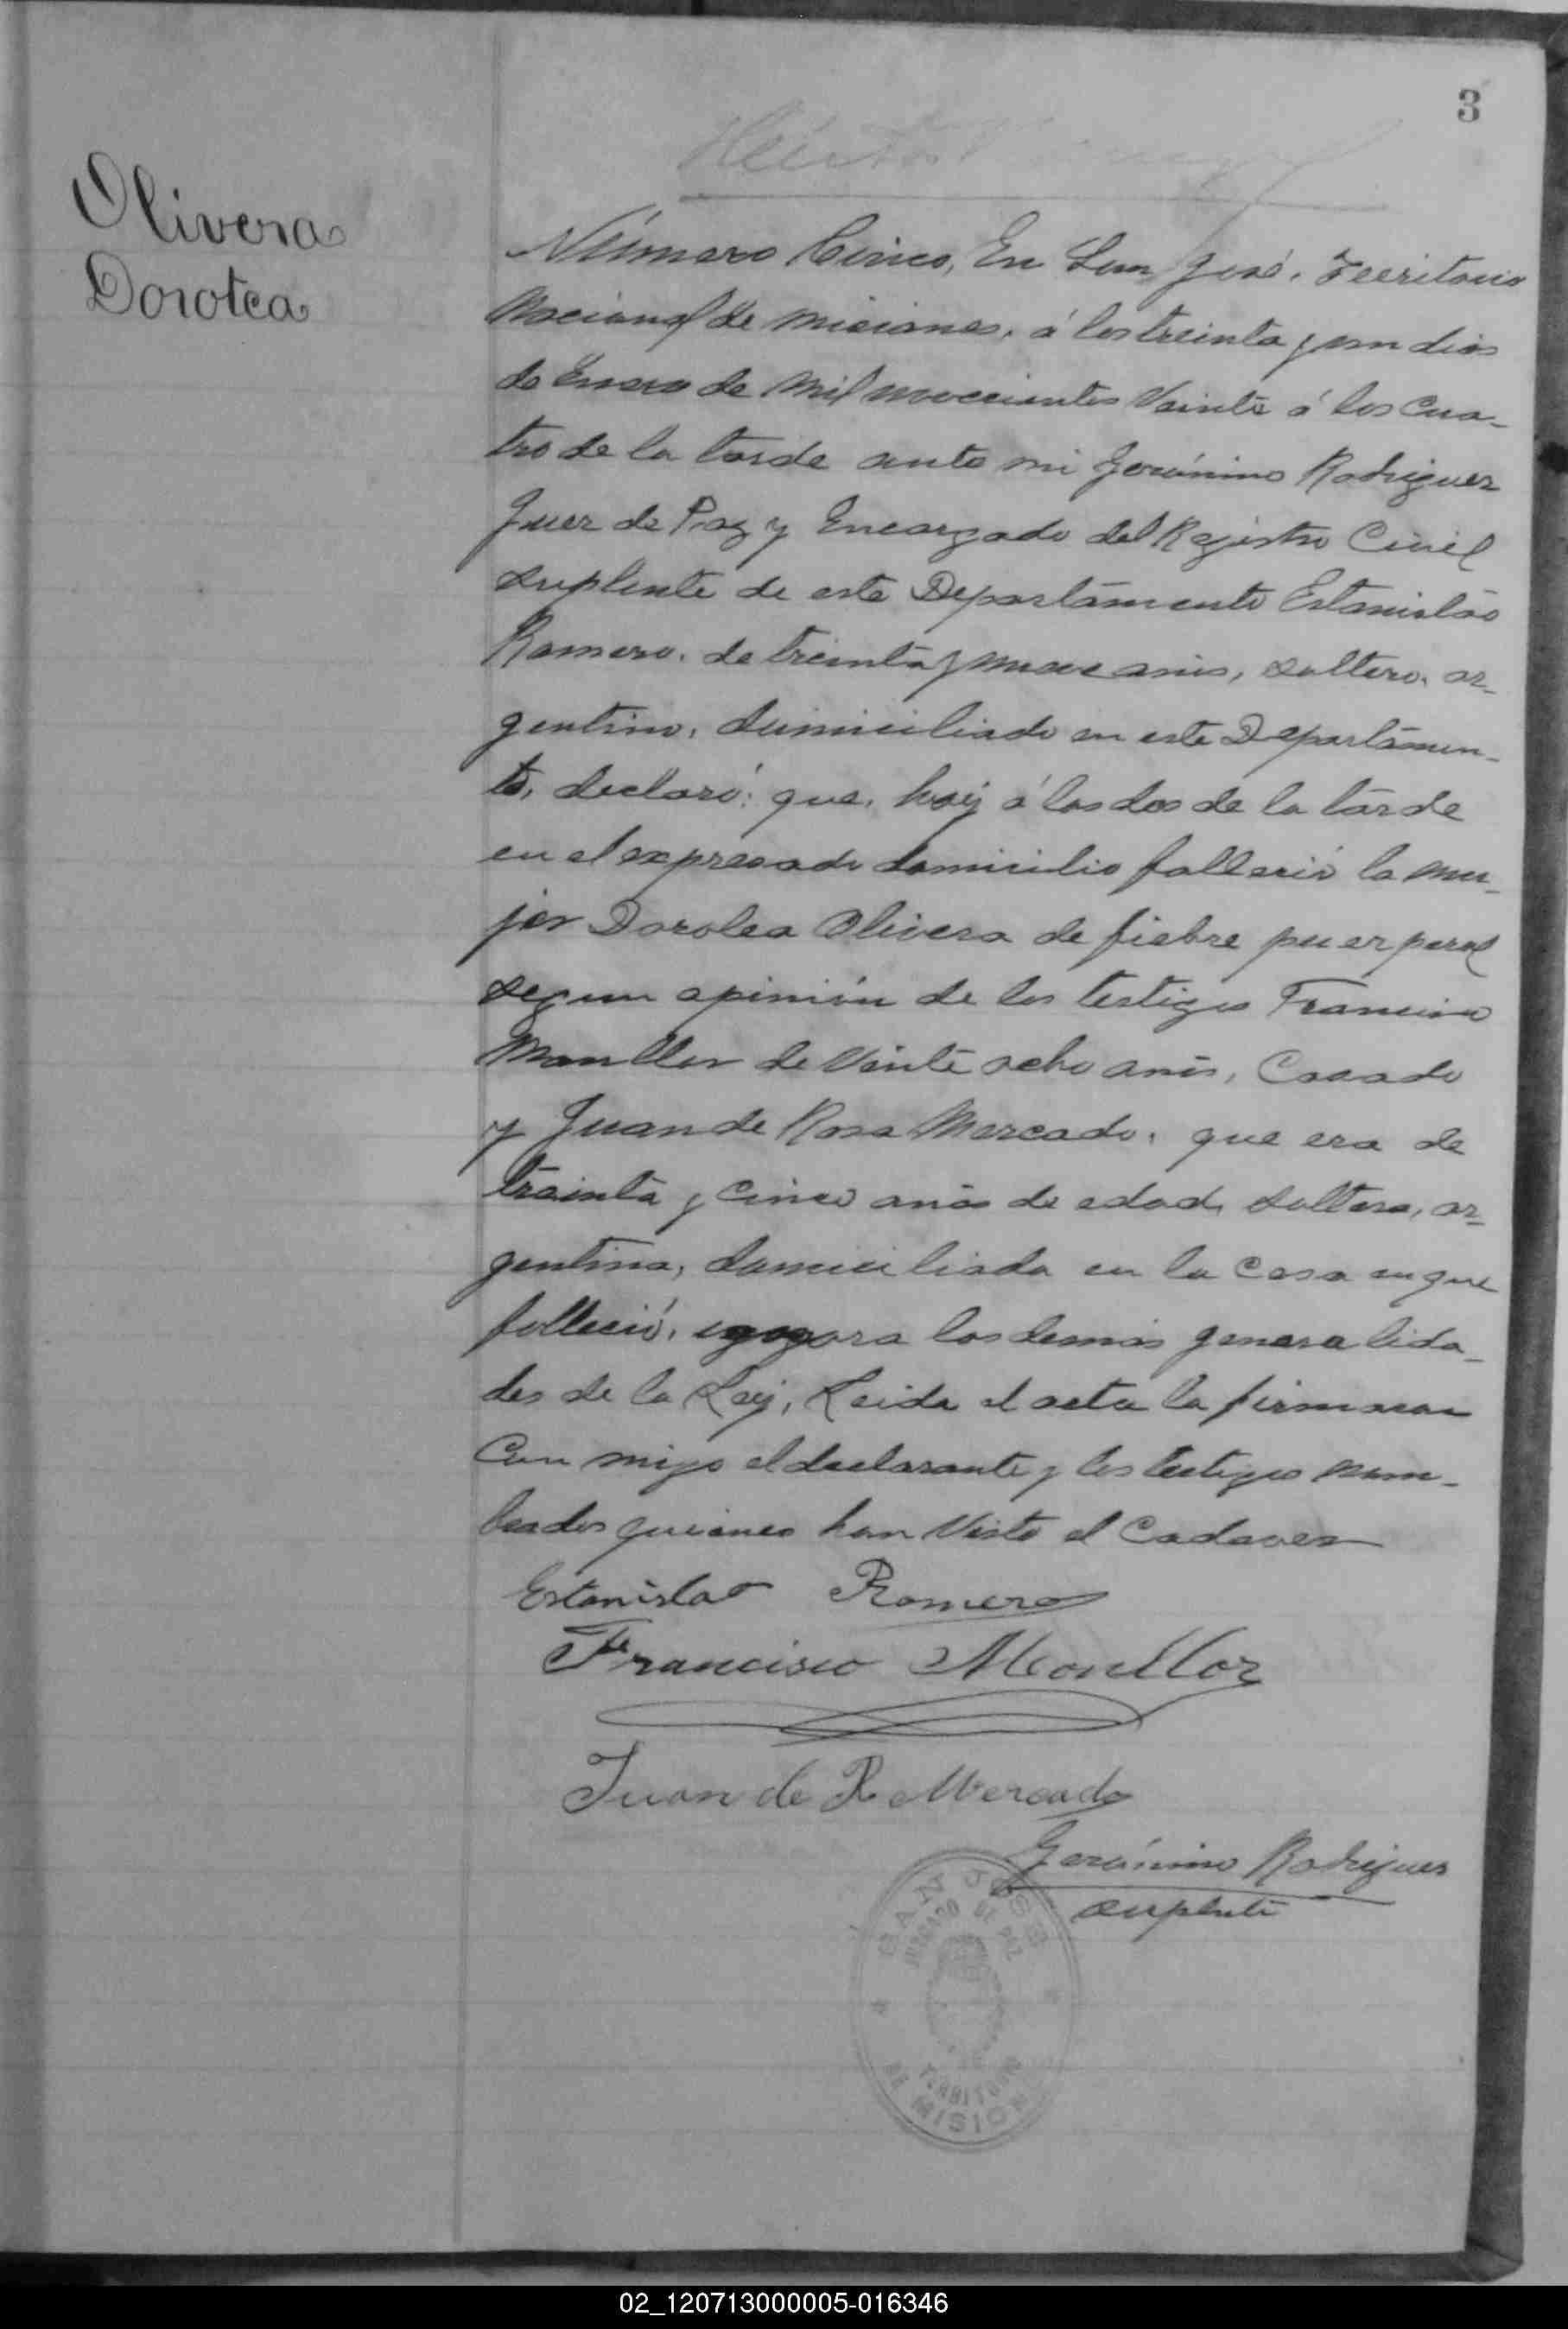 3
Olivera
Dorotea
Número Cinco, En San José, Territorio
Nacional de Misiones, á los treinta y un dias
de Enero de mil novecientos Veinte á las cua-
tro de la tarde ante mi Gerónimo Rodriguez
Juez de Paz y Encargado del Registro Civil
suplente de este Departamento Estanislao
Romero, de treinta y nueve anos, soltero, ar-
gentino, domiciliado en este Departamen-
to, declaró: que, hoy á las dos de la tarde
en el expresado domicilio falleció la mu-
jer Dorotea Olivera de fiebre puerperal
segun opinión de los testigos Francisco
Monllor de Veinte ocho anos, Casado
y Juan de Rosa Mercado, que era de
treinta y cinco anos de edad, soltera, ar-
gentina, domiciliada en la casa en que
falleció, las demás generalida-
des de la Ley, Leida el acta la firmaron
Con migo el declarante y los testigos nom-
brados quienes han Visto el Cadaver
Estanislao Romero
Francisco Monllor
Juan de R Mercado
Gerónimo Rodriguez
suplente
SAN JOSE
JUZGADO DE PAZ
TERRITORIO
DE MISION
02_120713000005-016346